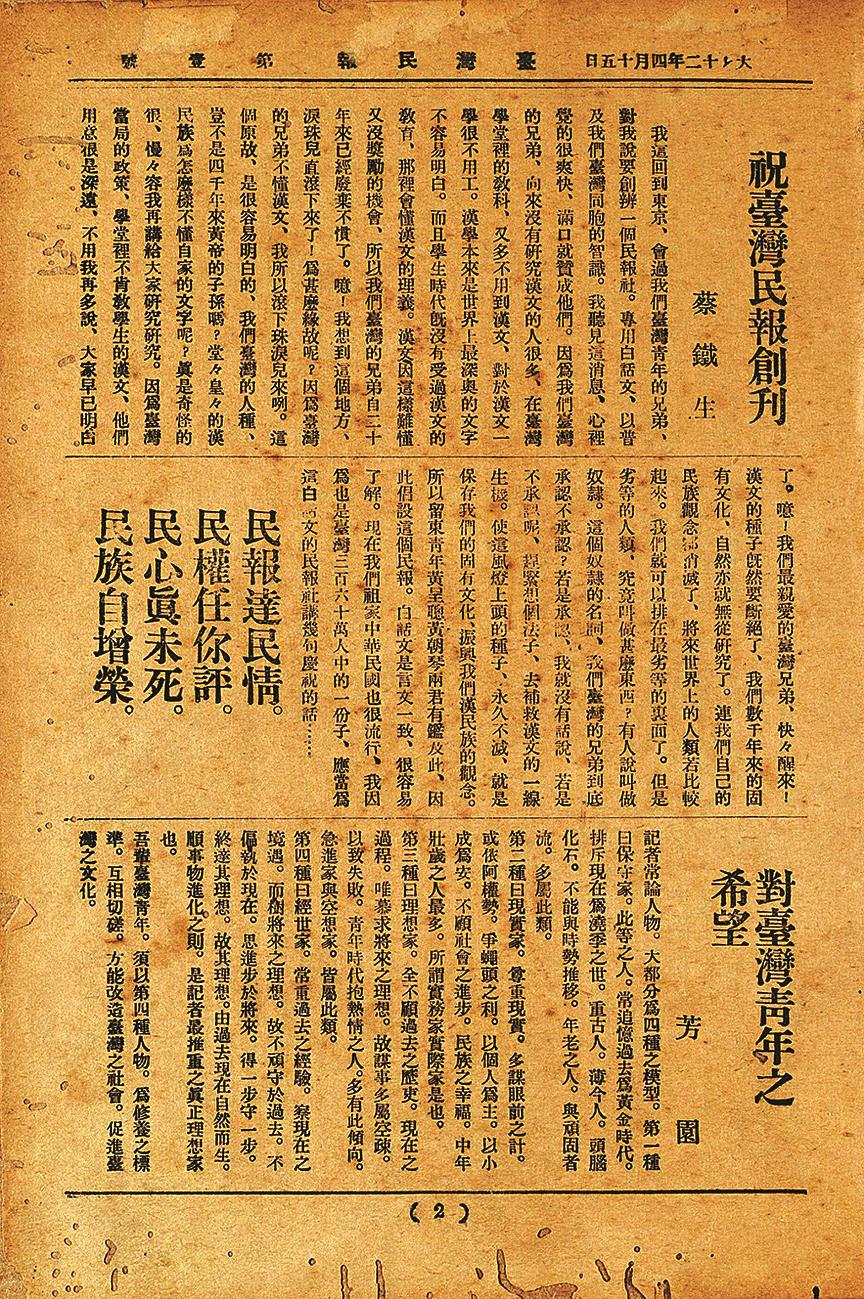 大正十二年四月十五日
臺灣民報
第壹號
祝臺灣民報創刊
蔡鐵生
我這回到東京、會過我們臺灣青年的兄弟、
對我說要創辦一個民報社。專用白話文、以普
及我們臺灣同胞的智識。我聽見這消息、心裡
覺的很爽快、滿口就贊成他們。因爲我們臺灣
的兄弟、向來沒有研究漢文的人很多、在臺灣
學堂裡的敎科、又多不用到漢文、對於漢文一
學很不用工。漢學本來是世界上最深奧的文字
不容易明白。而且學生時代旣沒有受過漢文的
敎育、那裡會懂漢文的理義。漢文因這樣難懂
又沒獎勵的機會、所以我們臺灣的兄弟自二十
年來已經廢棄不慣了。噫!我想到這個地方、
淚珠兒直滾下來了!爲甚麽緣故呢?因爲臺灣
的兄弟不懂漢文、我所以滾下珠淚兒來咧。這
個原故、是很容易明白的、我們臺灣的人種、
豈不是四千年來黃帝的子孫嗎?堂々皇々的漢
民族爲怎麽樣不懂自家的文字呢?眞是奇怪的
很、慢々容我再講給大家研究研究。因爲臺灣
當局的政策、學堂裡不肯敎學生的漢文、他們
用意很是深遠、不用我再多說、大家早已明白
了。噫!我們最親愛的臺灣兄弟、快々醒來!
漢文的種子旣然要斷絕了、我們數千年來的固
有文化、自然亦就無從研究了。連我們自己的
民族觀念都消滅了、將來世界上的人類若比較
起來。我們就可以排在最劣等的裏面了。但是
劣等的人類、究竟叫做甚麽東西?有人說叫做
奴隷。這個奴隷的名詞、我們臺灣的兄弟到底
承認不承認?若是承認、我就沒有話說、若是
不承認呢、趕緊想個法子、去補救漢文的一線
生機。使這風燈上頭的種子、永久不滅、就是
保存我們的固有文化、振興我們漢民族的觀念。
所以留東靑年黃呈聰黃朝琴兩君有鑑及此、因
此倡設這個民報。白話文是言文一致、很容易
了解。現在我們祖家中華民國也很流行、我因
爲也是臺灣三百六十萬人中的一份子、應當爲
這白話文的民報社講幾句慶祝的話……
民報達民情。
民權任你評。
民心眞未死。
民族自增榮。
對臺灣靑年之
希望
芳園
記者常論人物。大都分爲四種之模型。第一種
曰保守家。此等之人。常追憶過去爲黃金時代。
排斥現在爲澆季之世。重古人。薄今人。頭腦
化石。不能與時勢推移。年老之人。與頑固者
流。多屬此類。
第二種曰現實家。尊重現實。多謀眼前之計。
或依阿權勢。爭蠅頭之利。以個人爲主。以小
成爲安。不顧社會之進步。民族之幸福。中年
壯歲之人最多。所謂實務家實際家是也。
第三種曰理想家。全不顧過去之歷吏。現在之
過程。唯慕求將來之理想。故謀事多屬空疎。
以致失敗。靑年時代抱熱情之人。多有此傾向。
急進家與空想家。皆屬此類。
第四種曰經世家。常重過去之經驗。察現在之
境遇。而樹將來之理想。故不頑守於過去。不
偏執於現在。思進步於將來。得一步守一步。
終達其理想。故其理想。由過去現在自然而生。
順事物進化之則。是記者最推重之眞正理想家
也。
吾輩臺灣靑年。須以第四種人物。爲修養之標
準。互相切磋。方能改造臺灣之社會。促進臺
灣之文化。
(2)